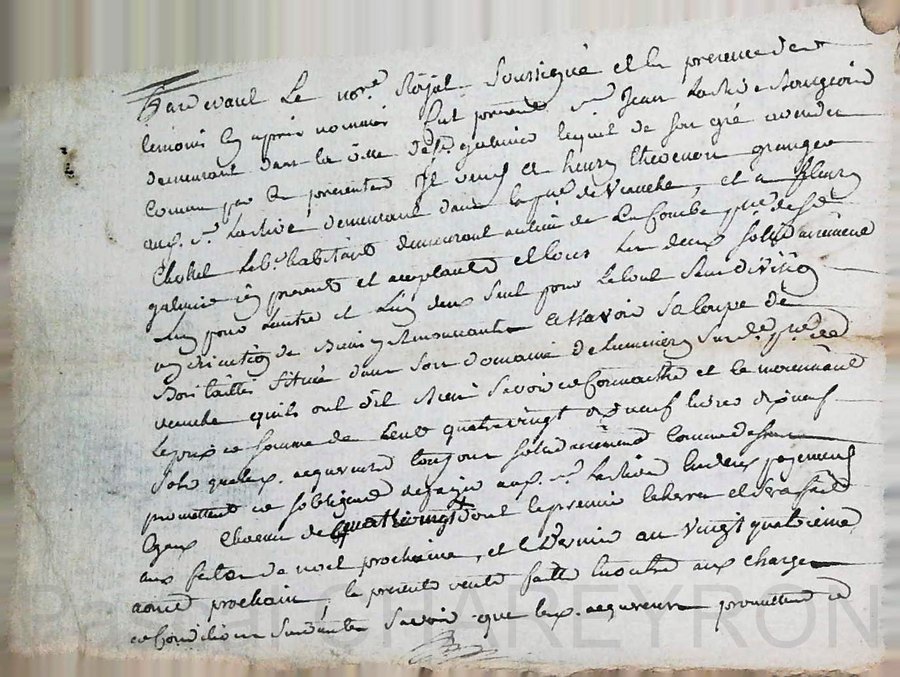 Pardevant Le no.re Royal Soussigné et En presence des
temoins Cy apprès nommés fut present s.r Jean Lashive Bourgeois
demeurant dans la ville de s.t galmier lequel de Son gré a vendu
comme par ces presentes Il vend a henry thevenon granger
aud. s.r Lashive demeurant dans la p.sse de Veauche, et a fleury
habitant demeurant au lieu de La Combe p.sse de S.t
galmier icy presents et acceptants et tous Les deux Solidairement
Lun pour Lautre et Lun deux Seul pour Le tout Sans division
ny discution de Biens y Renonceants assavoir Sa Coupe de
Bois taillis Situé dans Son domaine de Sur lad. p.sse de
veauche quils ont dit Bien Savoir et Connoitre et ce moyenant
Le prix et Somme de Cent quatrevingt dixneuf livres dixneuf
Sols que lesd. acquereurs toujours Solidairement Comme dessus
promettent et Sobligent de payer aud. s.r Lashive En deux payements
Egaux Chacun de quatrevingt dont le premier Echerra et Sera fait
aux fettes de noel prochaine, et le Dernier au vingt quatrieme
aoust prochain, la presente vente faitte En outre aux charges
et Conditions Suivantes Savoir que lesd. acquereurs promettent et
Pascal CHAREYRON